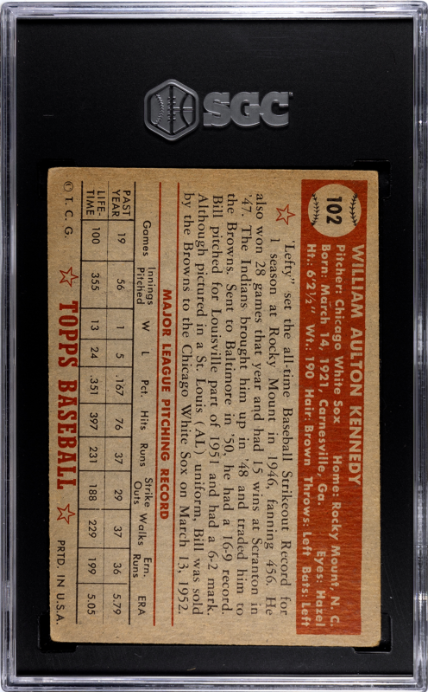 SGC
102
WILLIAM AULTON KENNEDY
Pitcher: Chicago White Sox Home: Rocky Mount, N. C.
Born: March 14, 1921, Carnesville, Ga. Eyes: Hazel
Ht.: 6'2½" Wt.: 190 Hair: Brown Throws: Left Bats: Left
"Lefty" set the all-time Baseball Strikeout Record for
1 season at Rocky Mount in 1946, fanning 456. He
also won 28 games that year and had 15 wins at Scranton in
'47. The Indians brought him up in '48 and traded him to
the Browns. Sent to Baltimore in '50, he had a 16-9 record.
Bill pitched for Louisville part of 1951 and had a 6-2 mark.
Although pictured in a St. Louis (AL) uniform, Bill was sold
by the Browns to the Chicago White Sox on March 13, 1952.
MAJOR LEAGUE PITCHING RECORD
Games Innings Pitched W L Pct. Hits Runs Strike Outs Walks Ern. Runs ERA
PAST YEAR 19 56 1 5 .167 76 37 29 37 36 5.79
LIFE-TIME 100 355 13 24 .351 397 231 188 229 199 5.05
© T. C. G. TOPPS BASEBALL PRTD. IN U.S.A.